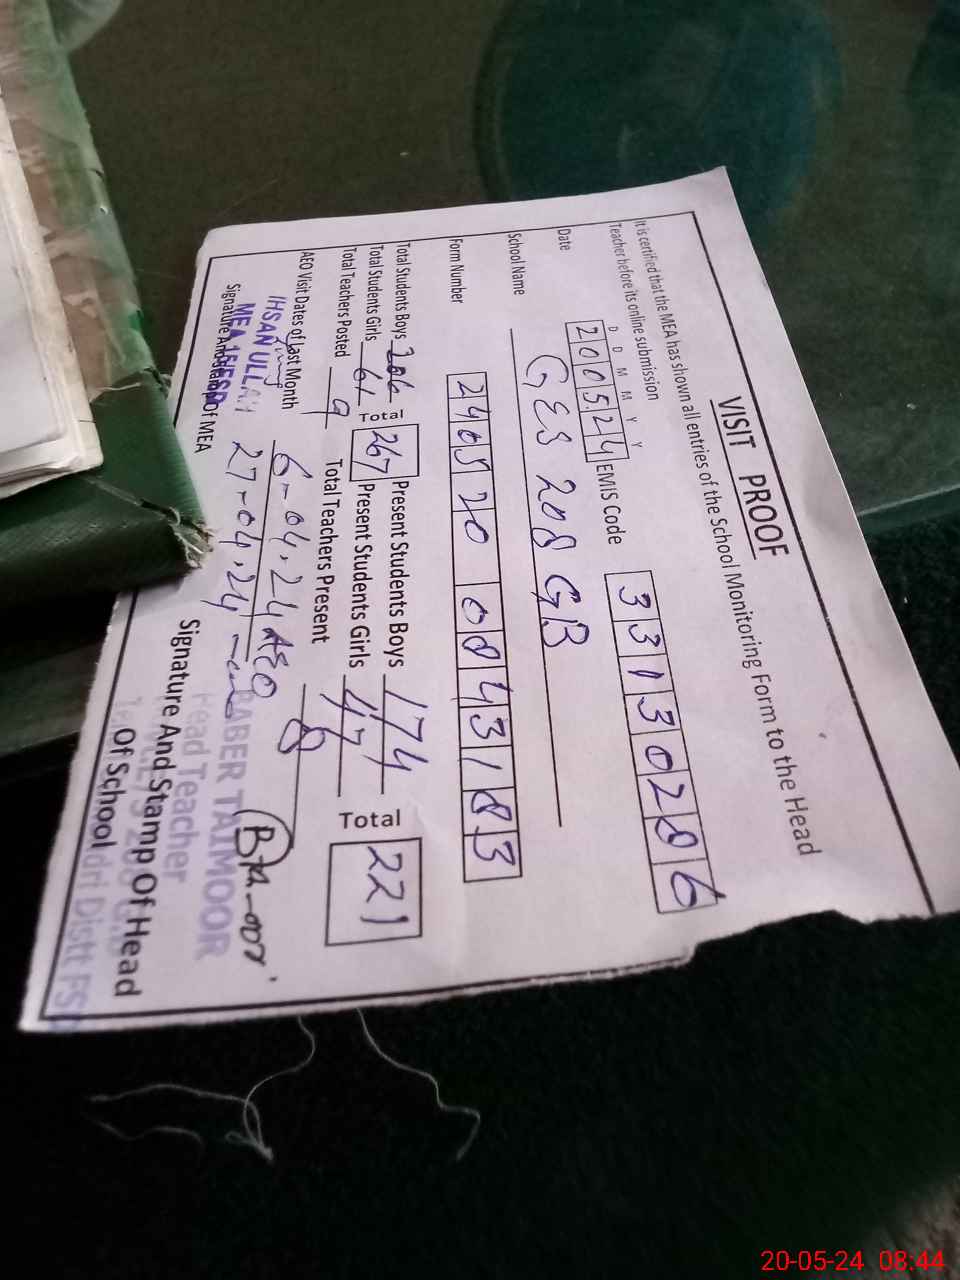 VISIT PROOF
It is certified that the MEA has shown all entries of the School Monitoring Form to the Head
Teacher before its online submission
D D M M Y Y
Date 200524 EMIS Code 33130286
School Name GES 208 GB
Form Number 240520 0843183
Total Students Boys 206 Present Students Boys 174
Total Students Girls 61 Total 267 Present Students Girls 47 Total 221
Total Teachers Posted 9 Total Teachers Present 8
AEO Visit Dates of Last Month 6-04.24 AEO
27-04.24
IHSAN ULLAH
MEA
Signature And Stamp Of MEA
BABER TAIMOOR
Head Teacher
Signature And Stamp Of Head
Of School
20-05-24 08:44